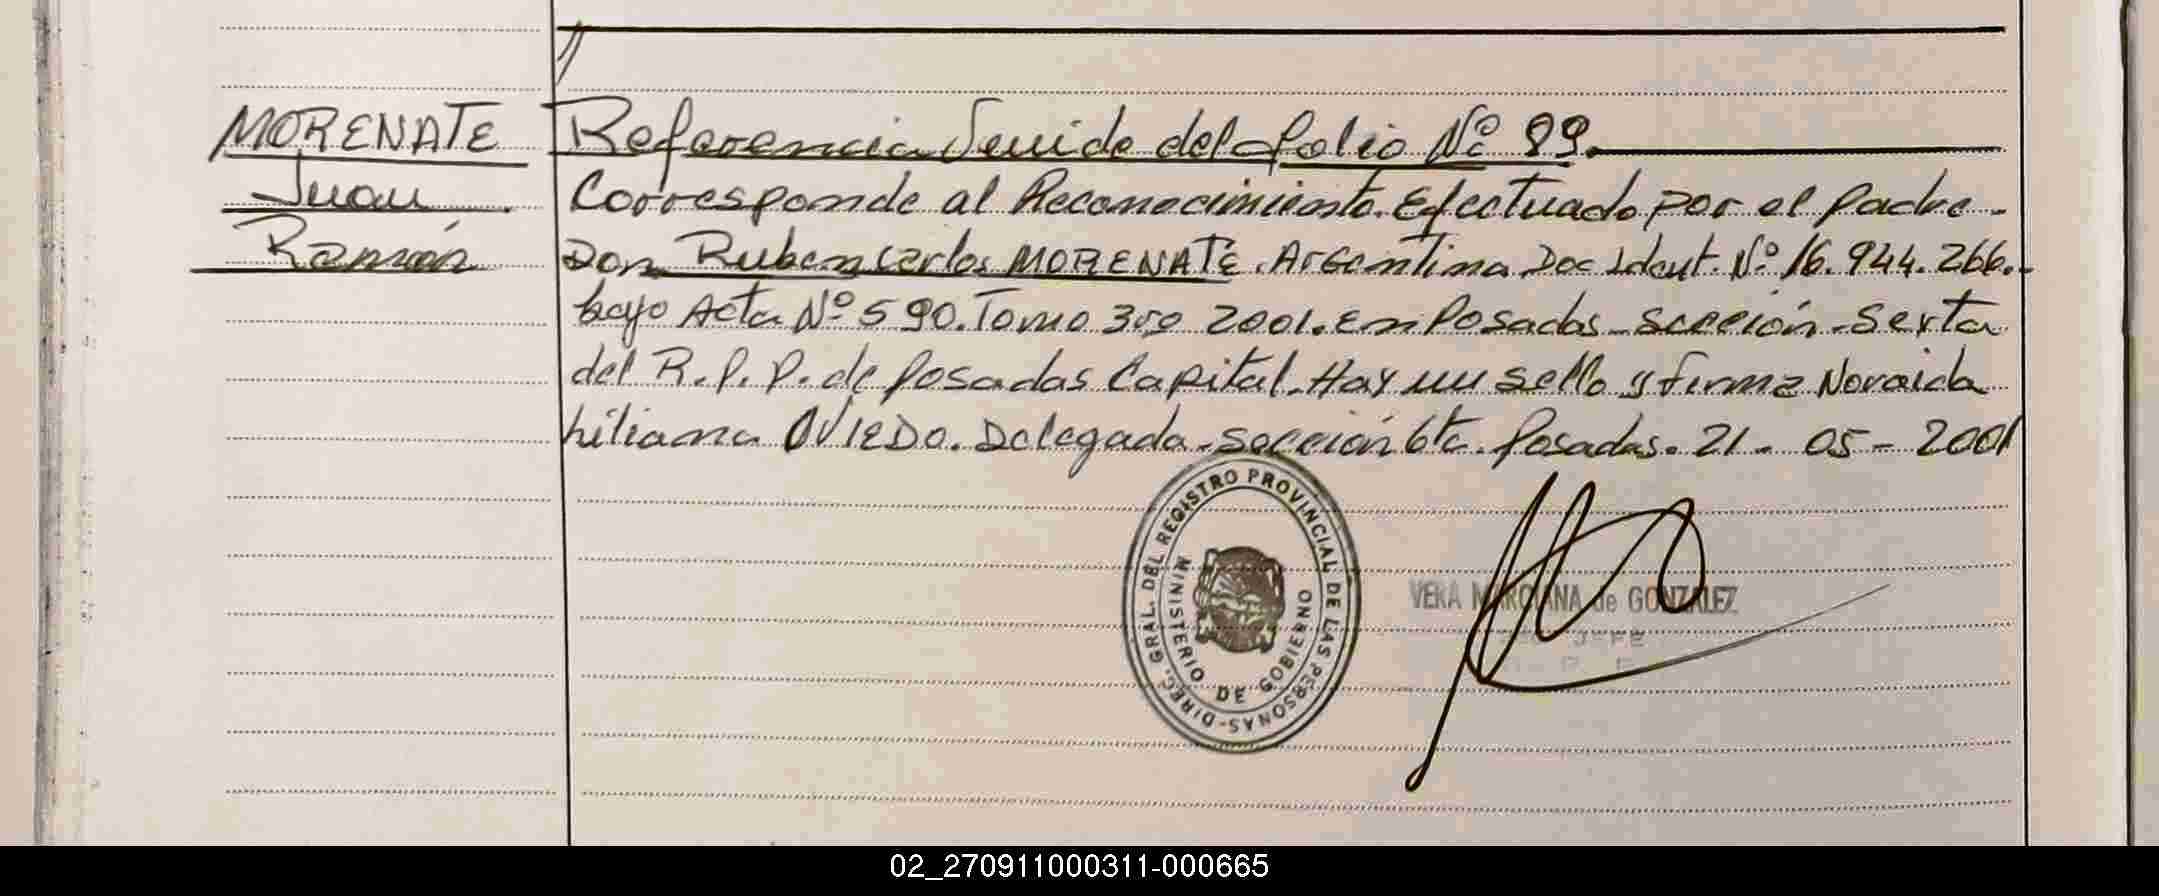 MORENATE
Juan
Ramón
Referencia Venida del folio Nº 89.
Corresponde al Reconocimiento Efectuado por el padre
Don Ruben Carlos MORENATE. Argentina Doc Ident. Nº 16.944.266.-
bajo Acta Nº 590. Tomo 3ro 2001. En Posadas - Sección - Sexta
del R.P.P. de Posadas Capital. Hay un sello y firma Noraida
Liliana OVIEDO. Delegada - Sección 6ta. Posadas. 21 - 05 - 2001
DIREC. GRAL. DEL REGISTRO PROVINCIAL DE LAS PERSONAS-
MINISTERIO DE GOBIERNO
VERA MARCIANA de GONZALEZ
JEFE
02_270911000311-000665